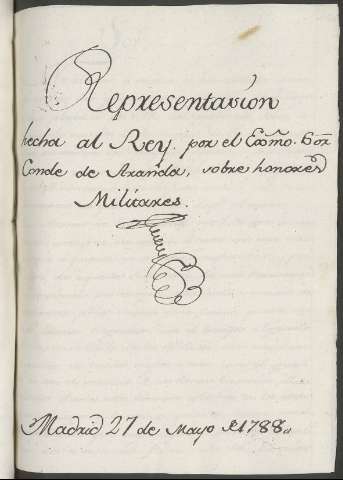 Representacion
hecha al Rey. por el Exc̃mo. Sor
Conde de Aranda, sobre honores
Militares.
Madrid 27 de Mayo de 1788.